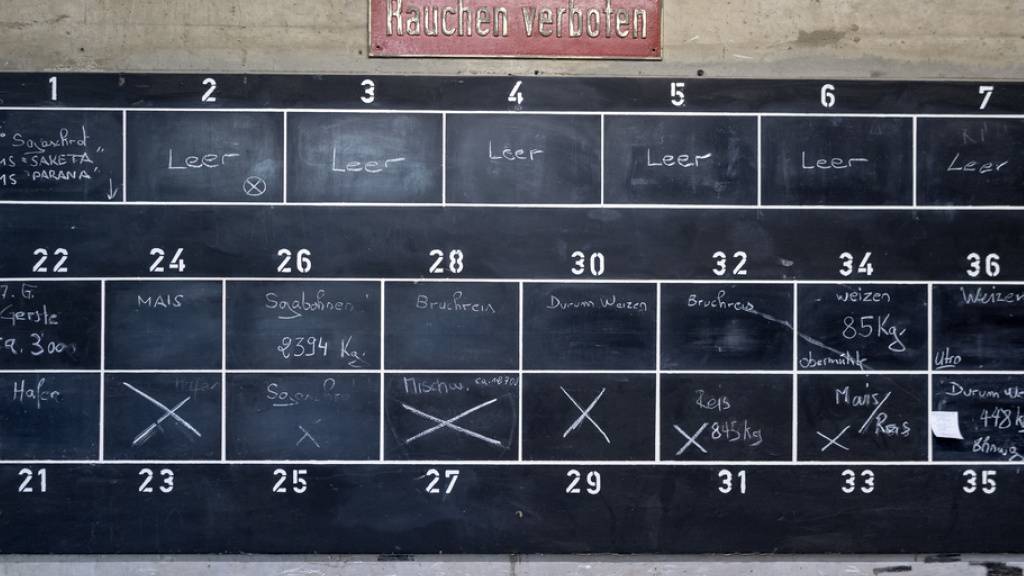 Rauchen verboten
1 2 3 4 5 6 7
Sojaschrot
"SAKETA"
"PARANA"
Leer
Leer
Leer
Leer
Leer
Leer
22 24 26 28 30 32 34 36
Gerste
300
MAIS
Sojabohnen
2394 Kg.
Bruchreis
Durum Weizen
Bruchreis
weizen
85Kg
obermühle
Weizen
Hafer
Mischw.
Reis
845kg
Mais/
Reis
Durum
448k
21 23 25 27 29 31 33 35